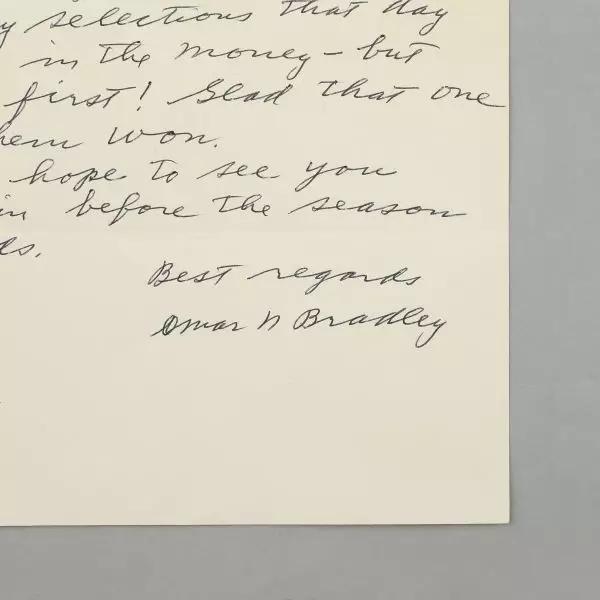 y selections that day
in the money - but
first! Glad that one
hem won.
hope to see you
in before the season
ds.
Best regards
Omar N Bradley